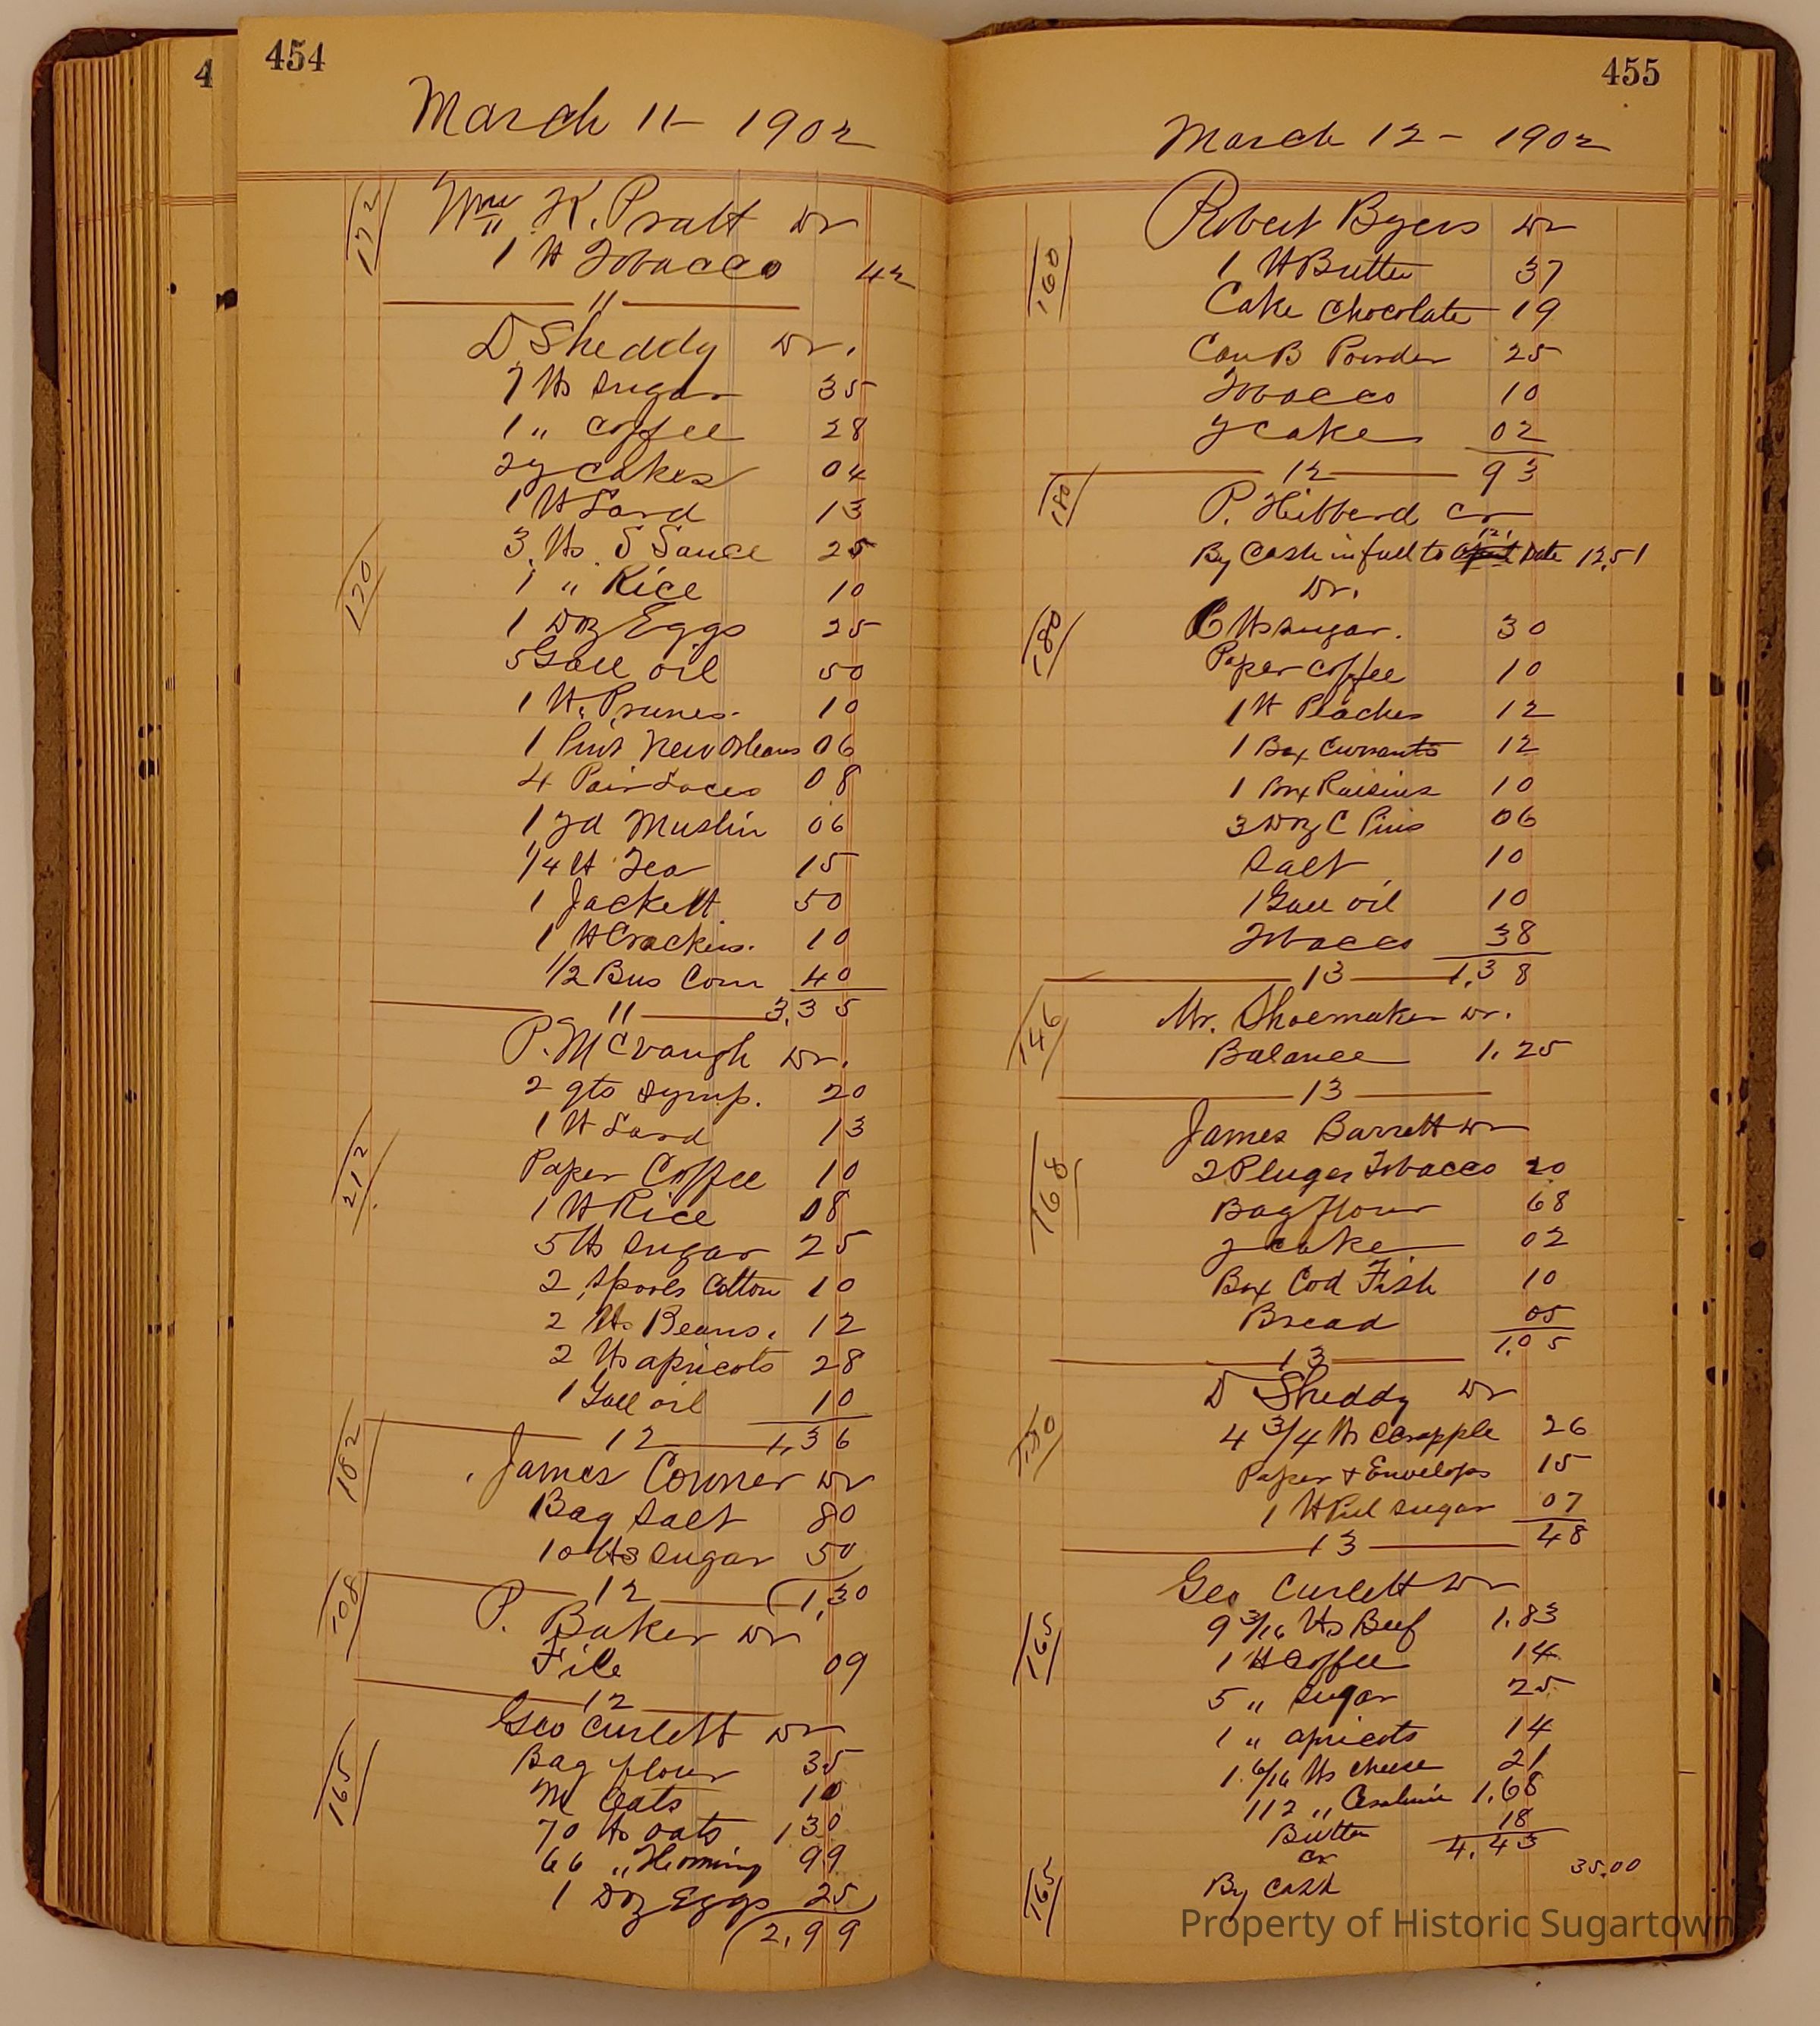 4
454
March 11- 1902
172
Wm K. Pratt Dr
1 lb Tobacco 42
11
D Sheddy Dr.
7 lbs Sugar 35
1 " Coffee 28
2 y cakes 04
1 lb Lard 13
3 lbs S Sauce 25
170
1 " Rice 10
1 Doz Eggs 25
5 Gall oil 50
1 lb. Prunes. 10
1 Pint New Orleans 06
4 Pair Laces 08
1 yd Muslin 06
1/4 lb Tea 15
1 Jackett 50
1 lb Crackers. 10
1/2 Bus Corn 40
11 3.35
P. McVaugh Dr.
2 qts Syrup. 20
1 lb Lard 13
212
Paper Coffee 10
1 lb Rice 08
5 lbs Sugar 25
2 Spools Cotton 10
2 lbs Beans. 12
2 lbs apricots 28
1 Gall oil 10
12 1,36
182
James Conner Dr
Bag Salt 80
10 lbs Sugar 50
12 1,30
108
P. Baker Dr
File 09
12
Geo Curlett Dr
165
Bag flour 35
M Oats 10
70 lbs oats 1 30
66 " Hominy 99
1 Doz Eggs 25
2,99
455
March 12- 1902
Robert Byers Dr
160
1 lb Butter 37
Cake Chocolate 19
Can B Powder 25
Tobacco 10
y cake 02
12 93
180
P. Hibberd Cr
By Cash in full to Date 12.51
Dr.
180
6 lbs sugar. 30
Paper coffee 10
1 lb Peaches 12
1 Box Currants 12
1 Box Raisins 10
3 Doz C Pins 06
Salt 10
1 Gall oil 10
Tobacco 38
13 1.38
146
Mr. Shoemaker Dr.
Balance 1.25
13
James Barrett Dr
168
2 Pluges Tobacco 20
Bag flour 68
y cake 02
Box Cod Fish 10
Bread 05
1.05
13
D Sheddy Dr
170
4 3/4 lbs Scrapple 26
Paper + Envelops 15
1 lb Pul sugar 07
48
13
Geo Curlett Dr
165
9 3/16 lbs Beef 1.83
1 lb Coffee 14
5 " Sugar 25
1 " apricots 14
1 6/16 lbs cheese 21
112 " 1.68
Butter 18
4.43
Cr
165
By cash 35.00
Property of Historic Sugartown